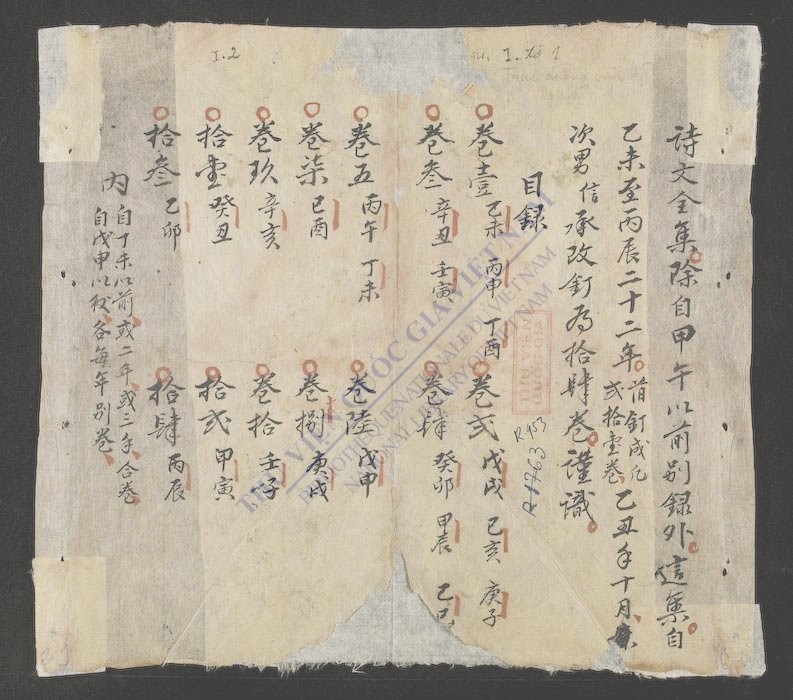 詩文全集除自甲午以前別録外這集自
乙未至丙辰二十二年前釘成凡弍拾壹卷乙丑年十月
次男信承改釘為拾肆卷謹識
目録
卷壹乙未 丙申 丁酉
卷弍戊戌 己亥 庚子
卷叁辛丑 壬寅
卷肆癸卯 甲辰 乙巳
卷五丙午 丁未
卷陸戊申
卷柒己酉
卷捌庚戌
卷玖辛亥
卷拾壬子
拾壹癸丑
拾弍甲寅
拾叁乙卯
拾肆丙辰
内自丁未以前或二年或三年合卷
自戊申以後各每年別卷
I.2
I. tờ 1
R.953
R.1763
THƯ VIỆN QUỐC GIA VIỆT NAM
BIBLIOTHÈQUE NATIONALE DU VIETNAM
NATIONAL LIBRARY OF VIETNAM